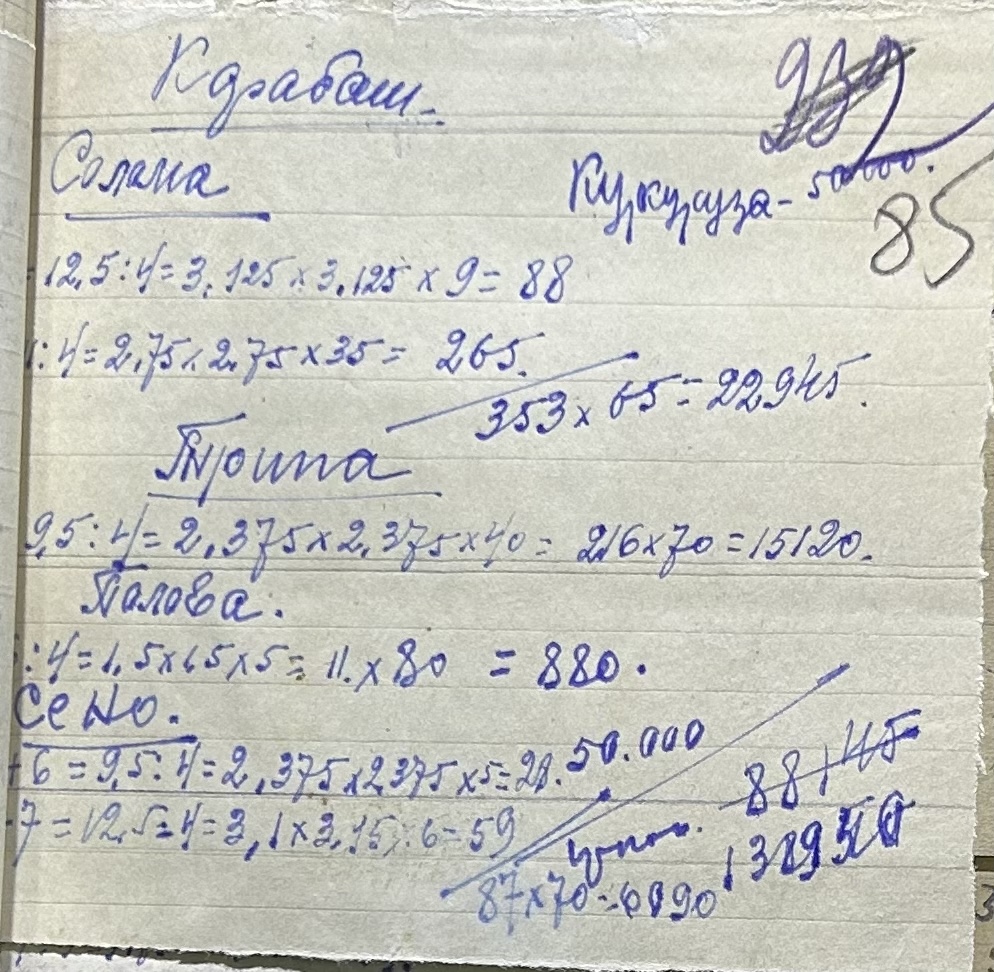 Карабаш.
Солома
Кукуруза - 50000.
85
12,5:4=3,125×3,125×9=88
:4=2,75×2,75×35= 265.
353×65=22945.
Трита
9,5:4=2,375×2,375×40= 216×70=15120.
Полова.
:4=1,5×1,5×5=11.×80 = 880.
Сено.
+6=9,5:4=2,375×2,375×5=28.
50.000
7=12,5=4=3,1×3,15×6-59
87×70=6090